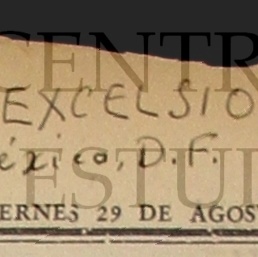 CENTR
EXCELSIO
éxico, D.F.
ESTU
ERNES 29 DE AGOS